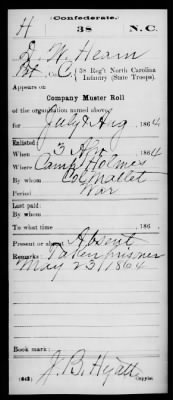 Confederate.
H 38 N.C.
J. W. Hearn
Pvt, Co. , 38 Reg't North Carolina
Infantry (State Troops).
Appears on
Company Muster Roll
of the organization named above,
for July & Aug, 1864
Enlisted:
When 3 Apr, 1864
Where Camp Holmes
By whom Col Mallet
Period War
Last paid:
By whom
To what time , 186 .
Present or absent Absent
Remarks: Taken prisoner
May 23 1864
Book mark:
J. B. Hyatt
(642) Copyist.